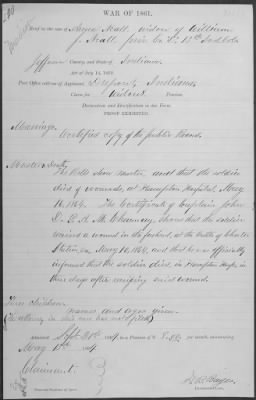 WAR OF 1861.
Brief in the case of Anna Hall, widow of William
J. Hall, priv. Co. 13th Ind Vols
Jefferson County, and State of Indiana
Act of July 14, 1862.
Post Office address of Applicant, Dupont, Indiana
Claim for Widow's Pension.
Declaration and Identification in due Form.
PROOF EXHIBITED.
Marriage. Certified copy of the public record.
Muster, Death,
The Rolls show muster, and that the soldier
died of wounds, at Hampton Hospital, May
16, 1864. The Certificate of Captain John
D. Chauncey, shows that the soldier
received a wound in the , at the battle of Chester
Station, on May 10, 1864, and that he was officially
informed that the soldier died, in Hampton Hosp., in
days after receiving said wound.
children
names and ages given.
(The attorney in this case has not filed)
Admitted Sept 21st, 1864, to a Pension of $8.00 per month, commencing
May 17th, 1864
Claimant.